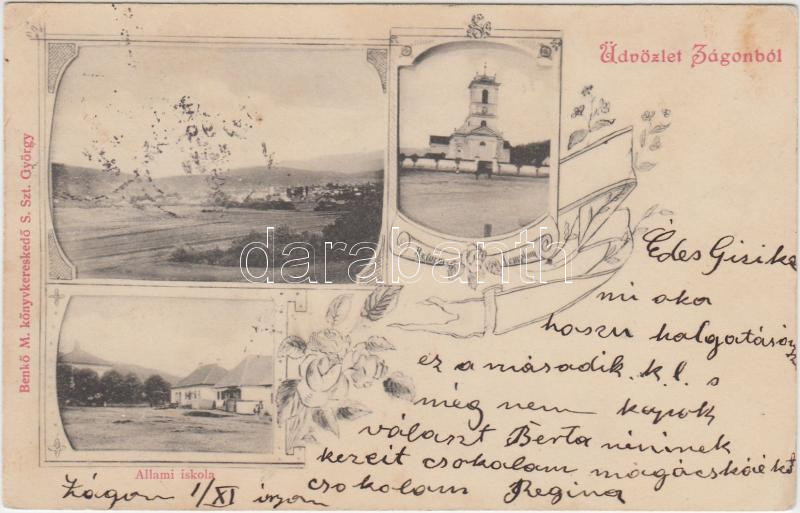 Üdvözlet Zágonból
Benkő M. könyvkereskedő S. Szt. György
Reform. templom
Allami iskola
darabanth
Édes Gizike
mi oka
hoszu halgatásának
ez a második k. l. s
még nem kapok
választ Berta néninek
kezeit csokolam magácskáékat
csokolam Regina
Zágon 1/XI